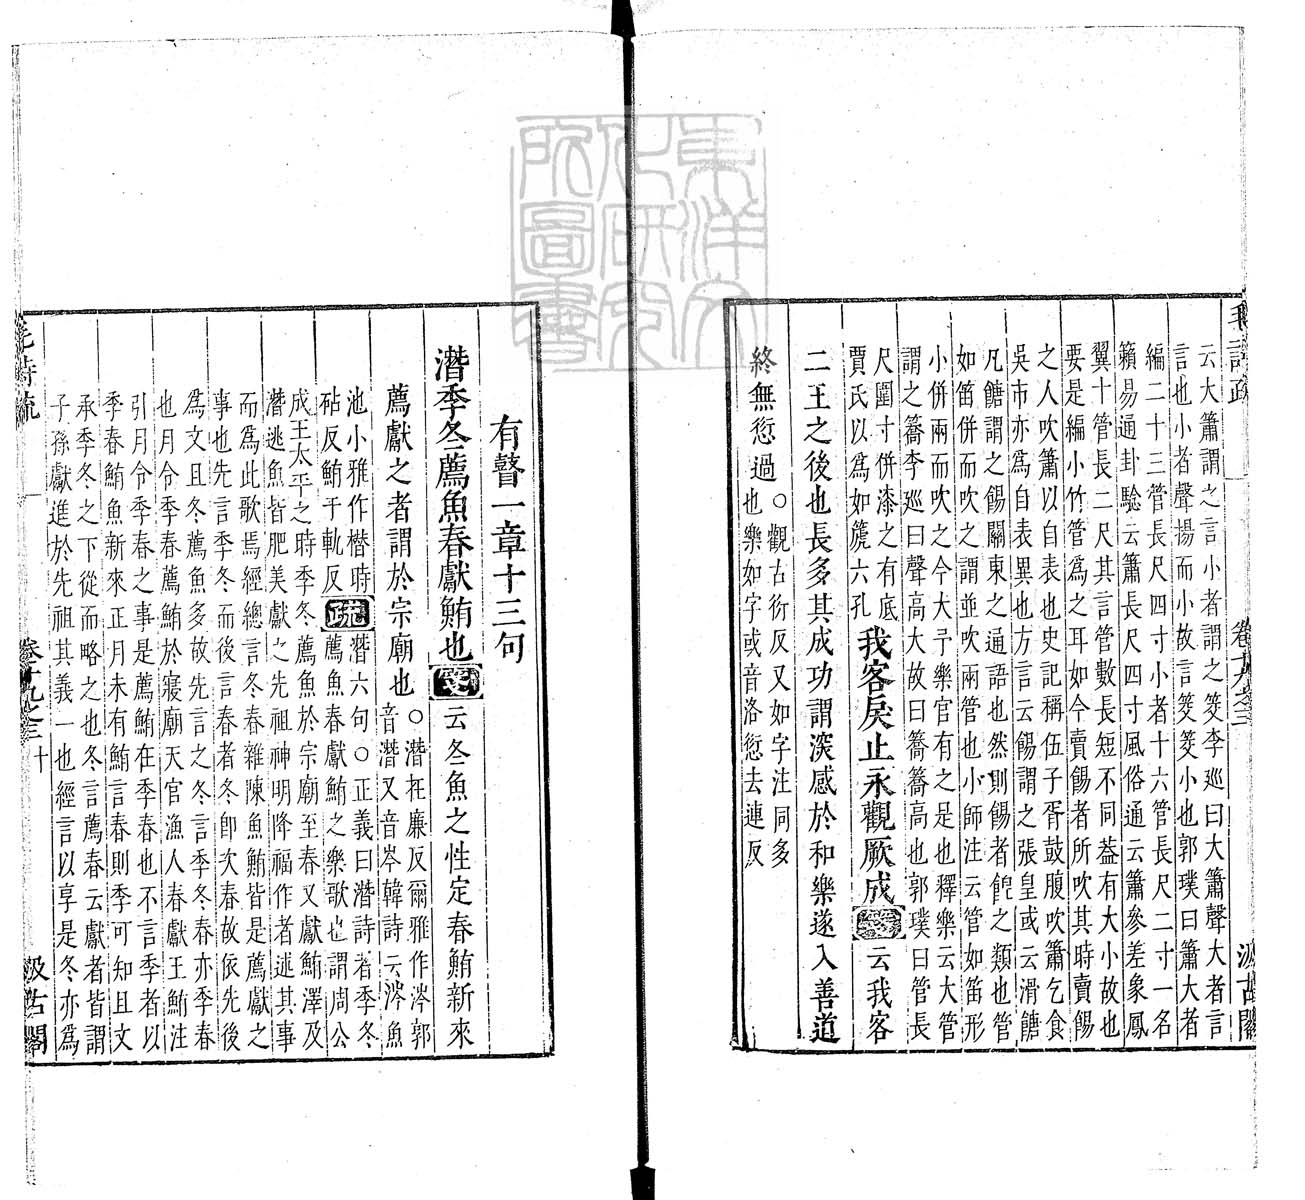 毛詩疏 卷十九之三 汲古閣
云大簫謂之言小者謂之筊李巡曰大簫聲大者言
言也小者聲揚而小故言筊筊小也郭璞曰簫大者
編二十三管長尺四寸小者十六管長尺二寸一名
籟易通卦驗云簫長尺四寸風俗通云簫參差象鳳
翼十管長二尺其言管數長短不同葢有大小故也
要是編小竹管爲之耳如今賣餳者所吹其時賣餳
之人吹簫以自表也史記稱伍子胥鼓腹吹簫乞食
吳市亦爲自表異也方言云餳謂之張皇或云滑餹
凡餹謂之餳關東之通語也然則餳者餭之類也管
如笛併而吹之謂並吹兩管也小師注云管如笛形
小併兩而吹之今大予樂官有之是也釋樂云大管
謂之簥李巡曰聲高大故曰簥簥高也郭璞曰管長
尺圍寸併漆之有底
賈氏以爲如篪六孔
我客戾止永觀厥成箋云我客
二王之後也長多其成功謂深感於和樂遂入善道
終無愆過○觀古衍反又如字注同多
也樂如字或音洛愆去連反
有瞽一章十三句
潛季冬薦魚春獻鮪也箋云冬魚之性定春鮪新來
薦獻之者謂於宗廟也○潛在廉反爾雅作涔郭
音潛又音岑韓詩云涔魚
池小雅作榰時
砧反鮪于軌反
疏
潛六句○正義曰潛詩者季冬
薦魚春獻鮪之樂歌也謂周公
成王太平之時季冬薦魚於宗廟至春又獻鮪澤及
潛逃魚皆肥美獻之先祖神明降福作者述其事
而爲此歌焉經總言冬春雜陳魚鮪皆是薦獻之
事也先言季冬而後言春者冬卽次春故依先後
爲文且冬薦魚多故先言之冬言季冬春亦季春
也月令季春薦鮪於寢廟天官漁人春獻王鮪注
引月令季春之事是薦鮪在季春也不言季者以
季春鮪魚新來正月未有鮪言春則季可知且文
承季冬之下從而略之也冬言薦春云獻者皆謂
子孫獻進於先祖其義一也經言以享是冬亦爲
毛詩疏 卷十九之三 十 汲古閣